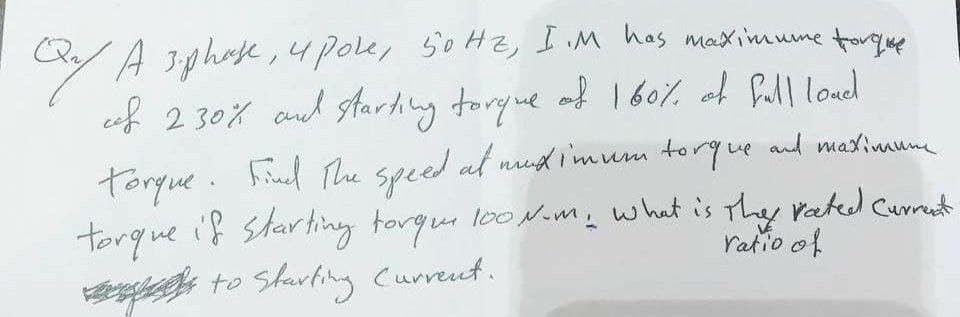 Q2/ A 3-phase, 4 pole, 50 HZ, I.M has maximume torque
of 230% and starting torque of 160% of full load
torque. Find The speed at maximum torque and maximum
torque if starting torque 100 N-m. what is They rated Current
ratio of
to starting current.